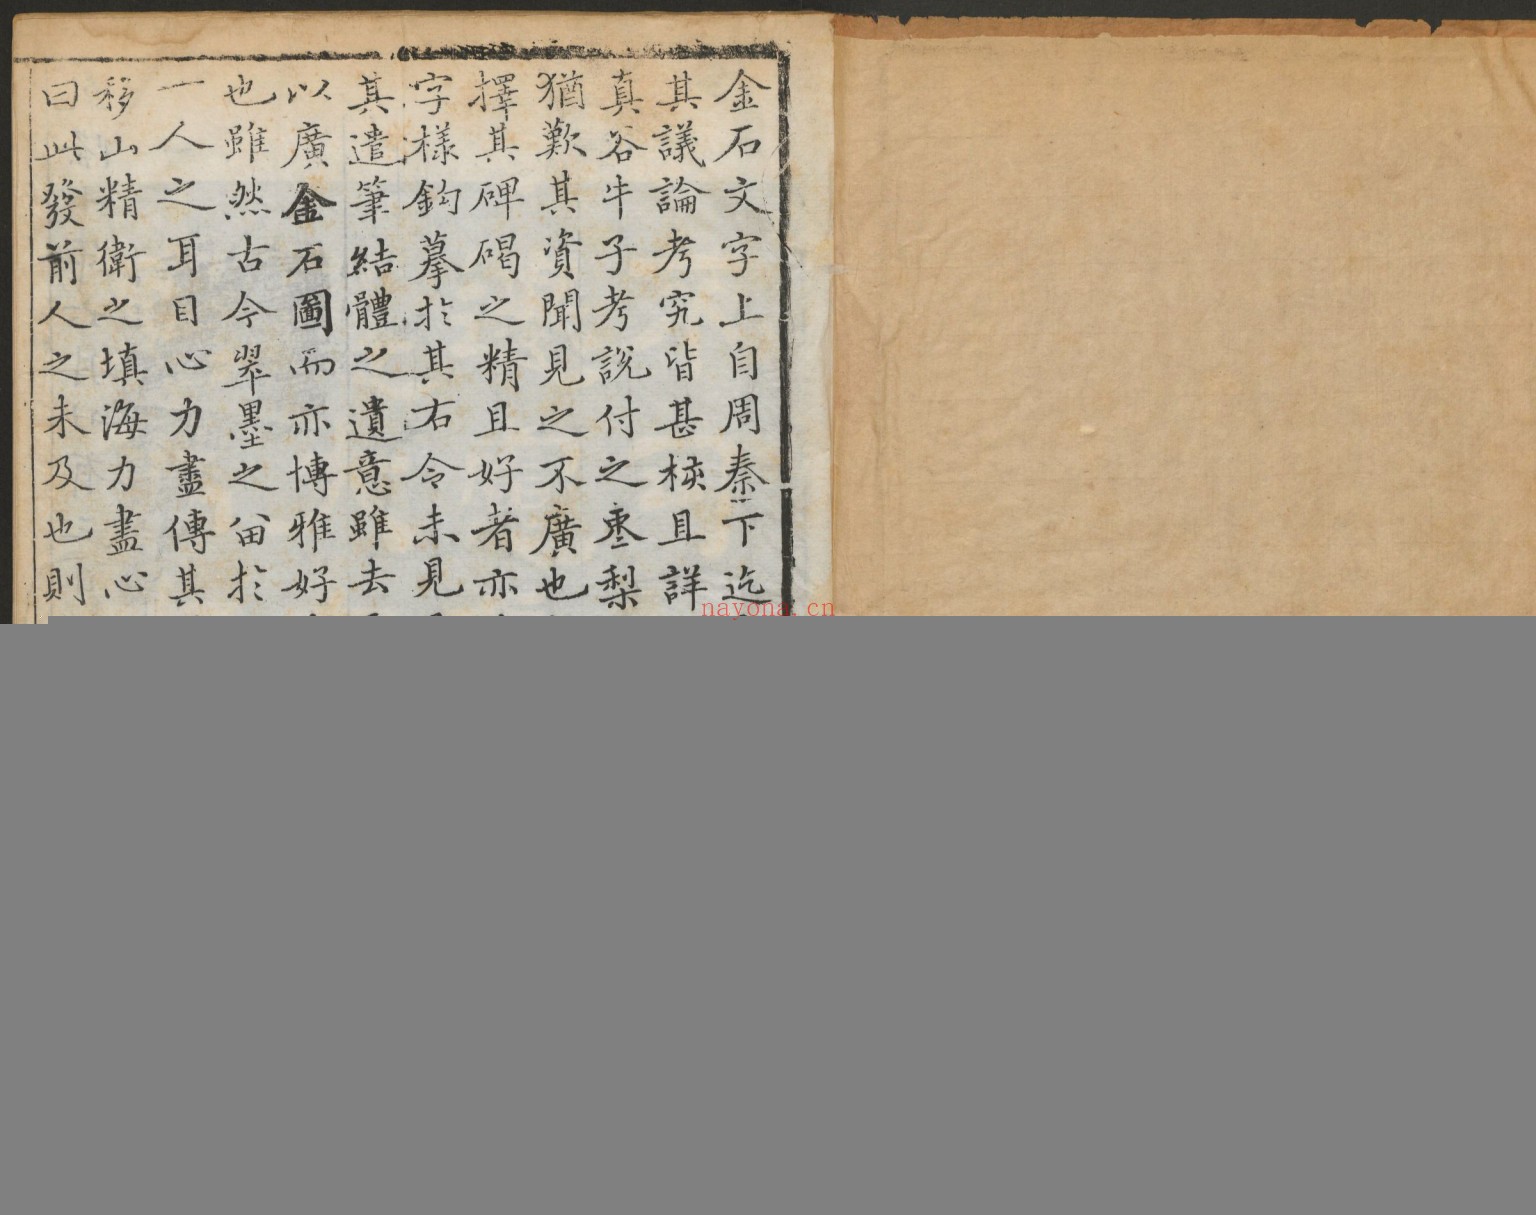 金石文字上自周秦下迄
其議論考究皆甚核且詳
真谷牛子考說付之棗梨
猶歎其資聞見之不廣也
擇其碑碣之精且好者亦
字樣鈎摹於其右令未見
其遣筆結體之遺意雖去
以廣金石圖而亦博雅好
也雖然古今翠墨之留於
一人之耳目心力盡傳其
移山精衛之填海力盡心
曰此發前人之未及也則
nayona.cn